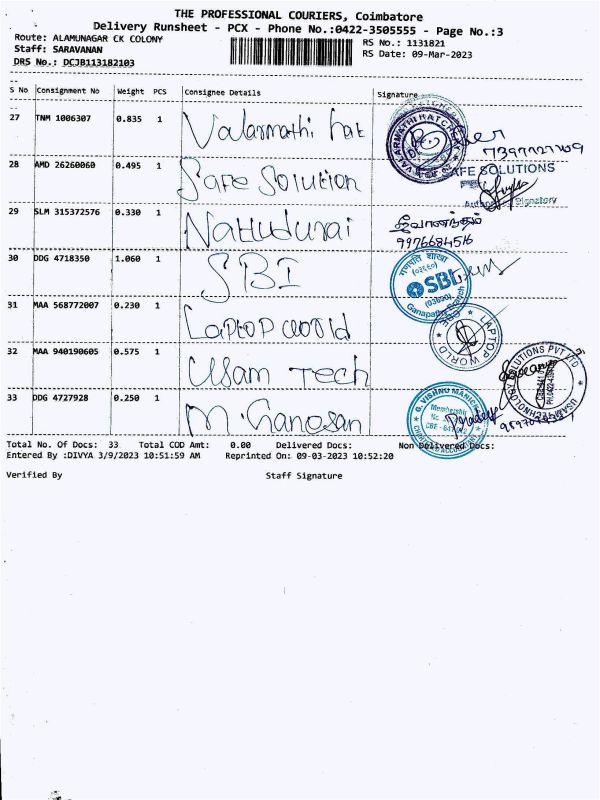 THE PROFESSIONAL COURIERS, Coimbatore
Delivery Runsheet - PCX - Phone No.:0422-3505555 - Page No.:3
Route: ALAMUNAGAR CK COLONY
Staff: SARAVANAN
DRS No.: DCJB113182103
RS No.: 1131821
RS Date: 09-Mar-2023
S No Consignment No Weight PCS Consignee Details Signature
27 TNM 1006307 0.835 1 Valarmathi hat
VALARMATHI HATCHERIES
28 AMD 26260060 0.495 1 Safe Solution
SAFE SOLUTIONS
Authorised Signatory
29 SLM 315372576 0.330 1 Nattudurai
ஜீவானந்தம்
9976684516
30 DDG 4718350 1.060 1 SBI
गणपति शाखा
SBI
Ganapathy Branch
31 MAA 568772007 0.230 1 Laptop world
LAPTOP WORLD
CBE
32 MAA 940190605 0.575 1 Usam Tech
USAM TECHNOLOGY SOLUTIONS PVT LTD
33 DDG 4727928 0.250 1 M.Ganesan
G. VISHNU MANICK
Membership
No.
CHARTERED ACCOUNTANT
Pradeep
Total No. Of Docs: 33 Total COD Amt: 0.00 Delivered Docs: Non Delivered Docs:
Entered By :DIVYA 3/9/2023 10:51:59 AM Reprinted On: 09-03-2023 10:52:20
Verified By Staff Signature